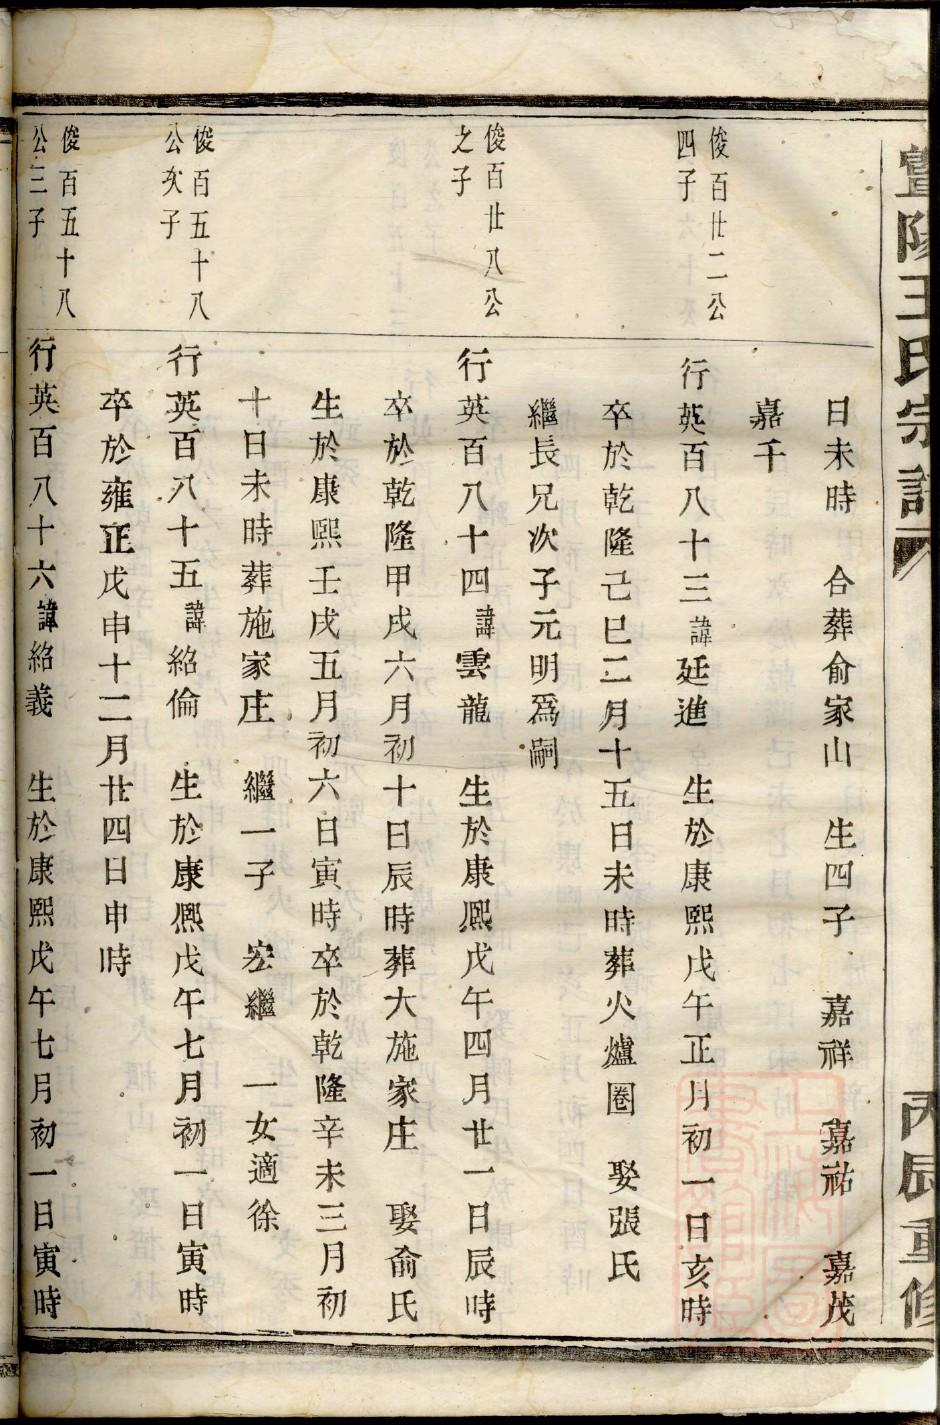 暨陽王氏宗譜
丙辰重修
日未時　合葬俞家山　生四子　嘉祥　嘉祐　嘉茂
嘉千
俊百廿二公
四子
行英百八十三諱廷進　生於康熙戊午正月初一日亥時
卒於乾隆己巳二月十五日未時葬火爐圈　娶張氏
繼長兄次子元明爲嗣
俊百廿八公
之子
行英百八十四諱雲龍　生於康熙戊午四月廿一日辰時
卒於乾隆甲戌六月初十日辰時葬大施家庄　娶俞氏
生於康熙壬戌五月初六日寅時卒於乾隆辛未三月初
十日未時葬施家庄　繼一子　宏繼　一女適徐
俊百五十八
公次子
行英百八十五諱紹倫　生於康熙戊午七月初一日寅時
卒於雍正戊申十二月廿四日申時
俊百五十八
公三子
行英百八十六諱紹義　生於康熙戊午七月初一日寅時